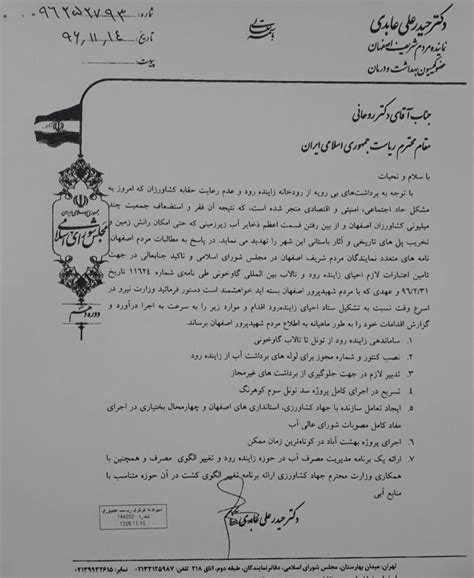 دکتر حیدر علی عابدی
نماینده مردم شریف اصفهان
عضو کمیسیون بهداشت و درمان
باسمه تعالی
شماره: ۰۹۶۲۵۲۷۹۳
تاریخ: ۹۶,۱۱,۱۴
پیوست:
جمهوری اسلامی ایران
مجلس شورای اسلامی
دوره دهم
جناب آقای دکتر روحانی
مقام محترم ریاست جمهوری اسلامی ایران
با سلام و تحیات
با توجه به برداشت‌های بی رویه از رودخانه زاینده رود و عدم رعایت حقابه کشاورزان که امروز به
مشکل حاد اجتماعی، امنیتی و اقتصادی منجر شده است، که نتیجه آن فقر و استضعاف جمعیت چند
میلیونی کشاورزان اصفهان و از بین رفتن قسمت اعظم ذخایر آب زیرزمینی که حتی امکان رانش زمین و
تخریب پل های تاریخی و آثار باستانی این شهر را تهدید می نماید. در پاسخ به مطالبات مردم اصفهان و
نامه های متعدد نمایندگان مردم شریف اصفهان در مجلس شورای اسلامی و تاکید جنابعالی در جهت
تامین اعتبارات لازم احیای زاینده رود و تالاب بین المللی گاوخونی طی نامه‌ی شماره ۱۱۶۲۴ تاریخ
۹۶/۲/۳۱ و عهدی که با مردم شهیدپرور اصفهان بسته اید خواهشمند است دستور فرمائید وزارت نیرو در
اسرع وقت نسبت به تشکیل ستاد احیای زاینده‌رود اقدام و موارد زیر را به سرعت به اجرا درآورد و
گزارش اقدامات خود را به طور ماهیانه به اطلاع مردم شهیدپرور اصفهان برساند.
۱. ساماندهی زاینده رود از تونل تا تالاب گاوخونی
۲. نصب کنتور و شماره مجوز برای لوله های برداشت آب از زاینده رود
۳. تدبیر لازم در جهت جلوگیری از برداشت های غیرمجاز
۴. تسریع در اجرای کامل پروژه سد تونل سوم کوهرنگ
۵. ایجاد تعامل سازنده با جهاد کشاورزی، استانداری های اصفهان و چهارمحال بختیاری در اجرای
مفاد کامل مصوبات شورای عالی آب
۶. اجرای پروژه بهشت آباد در کوتاه‌ترین زمان ممکن
۷. ارائه یک برنامه مدیریت مصرف آب در حوزه زاینده رود و تغییر الگوی مصرف و همچنین با
همکاری وزارت محترم جهاد کشاورزی ارائه برنامه تغییر الگوی کشت در آن حوزه متناسب با
منابع آبی
دکتر حیدر علی عابدی
تهران: میدان بهارستان، مجلس شورای اسلامی، دفاتر نمایندگان، طبقه دوم، اتاق ۲۱۸ تلفن: ۰۲۱۳۳۱۲۵۹۸۷ نمابر: ۰۲۱۳۹۹۳۲۶۱۵